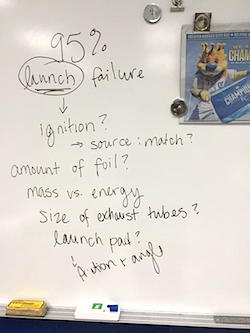 95%
launch failure
↓
ignition?
→ source: match?
amount of foil?
mass vs. energy
Size of exhaust tubes?
launch pad?
friction + angle
CHAMPIONS